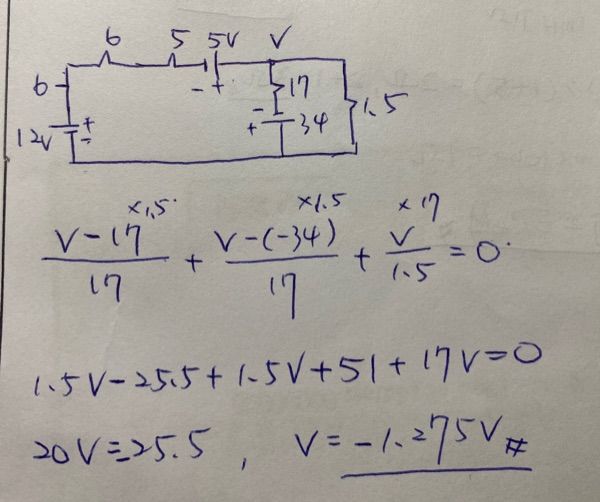 6 5 5V V
- +
6
17
1.5
12V + -
- + 34
×1.5 ×1.5 ×17
V-17/17 + V-(-34)/17 + V/1.5 = 0
1.5V-25.5+1.5V+51+17V=0
20V=-25.5, V=-1.275V #